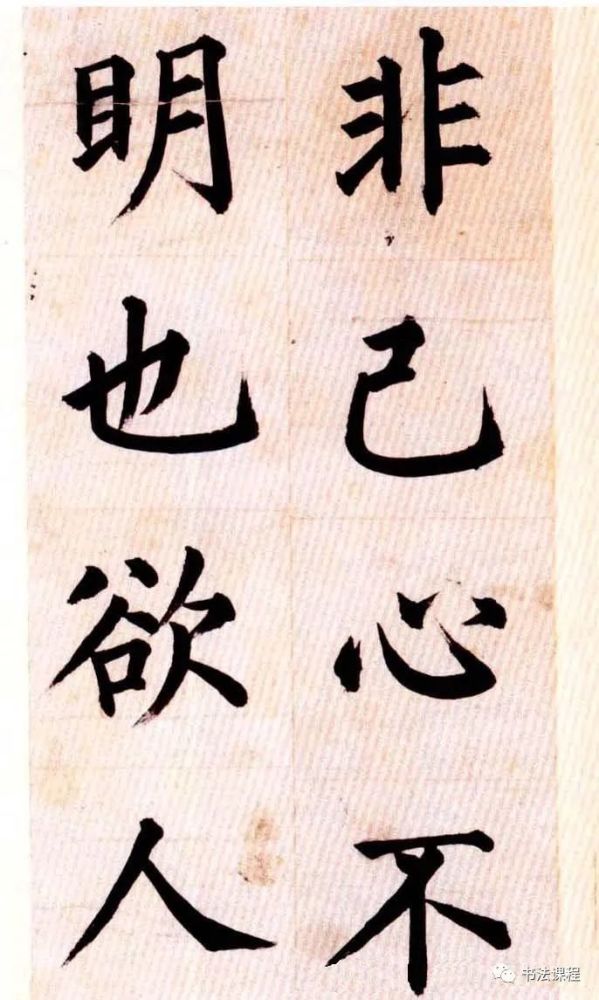 非己心不
明也欲人
书法课程